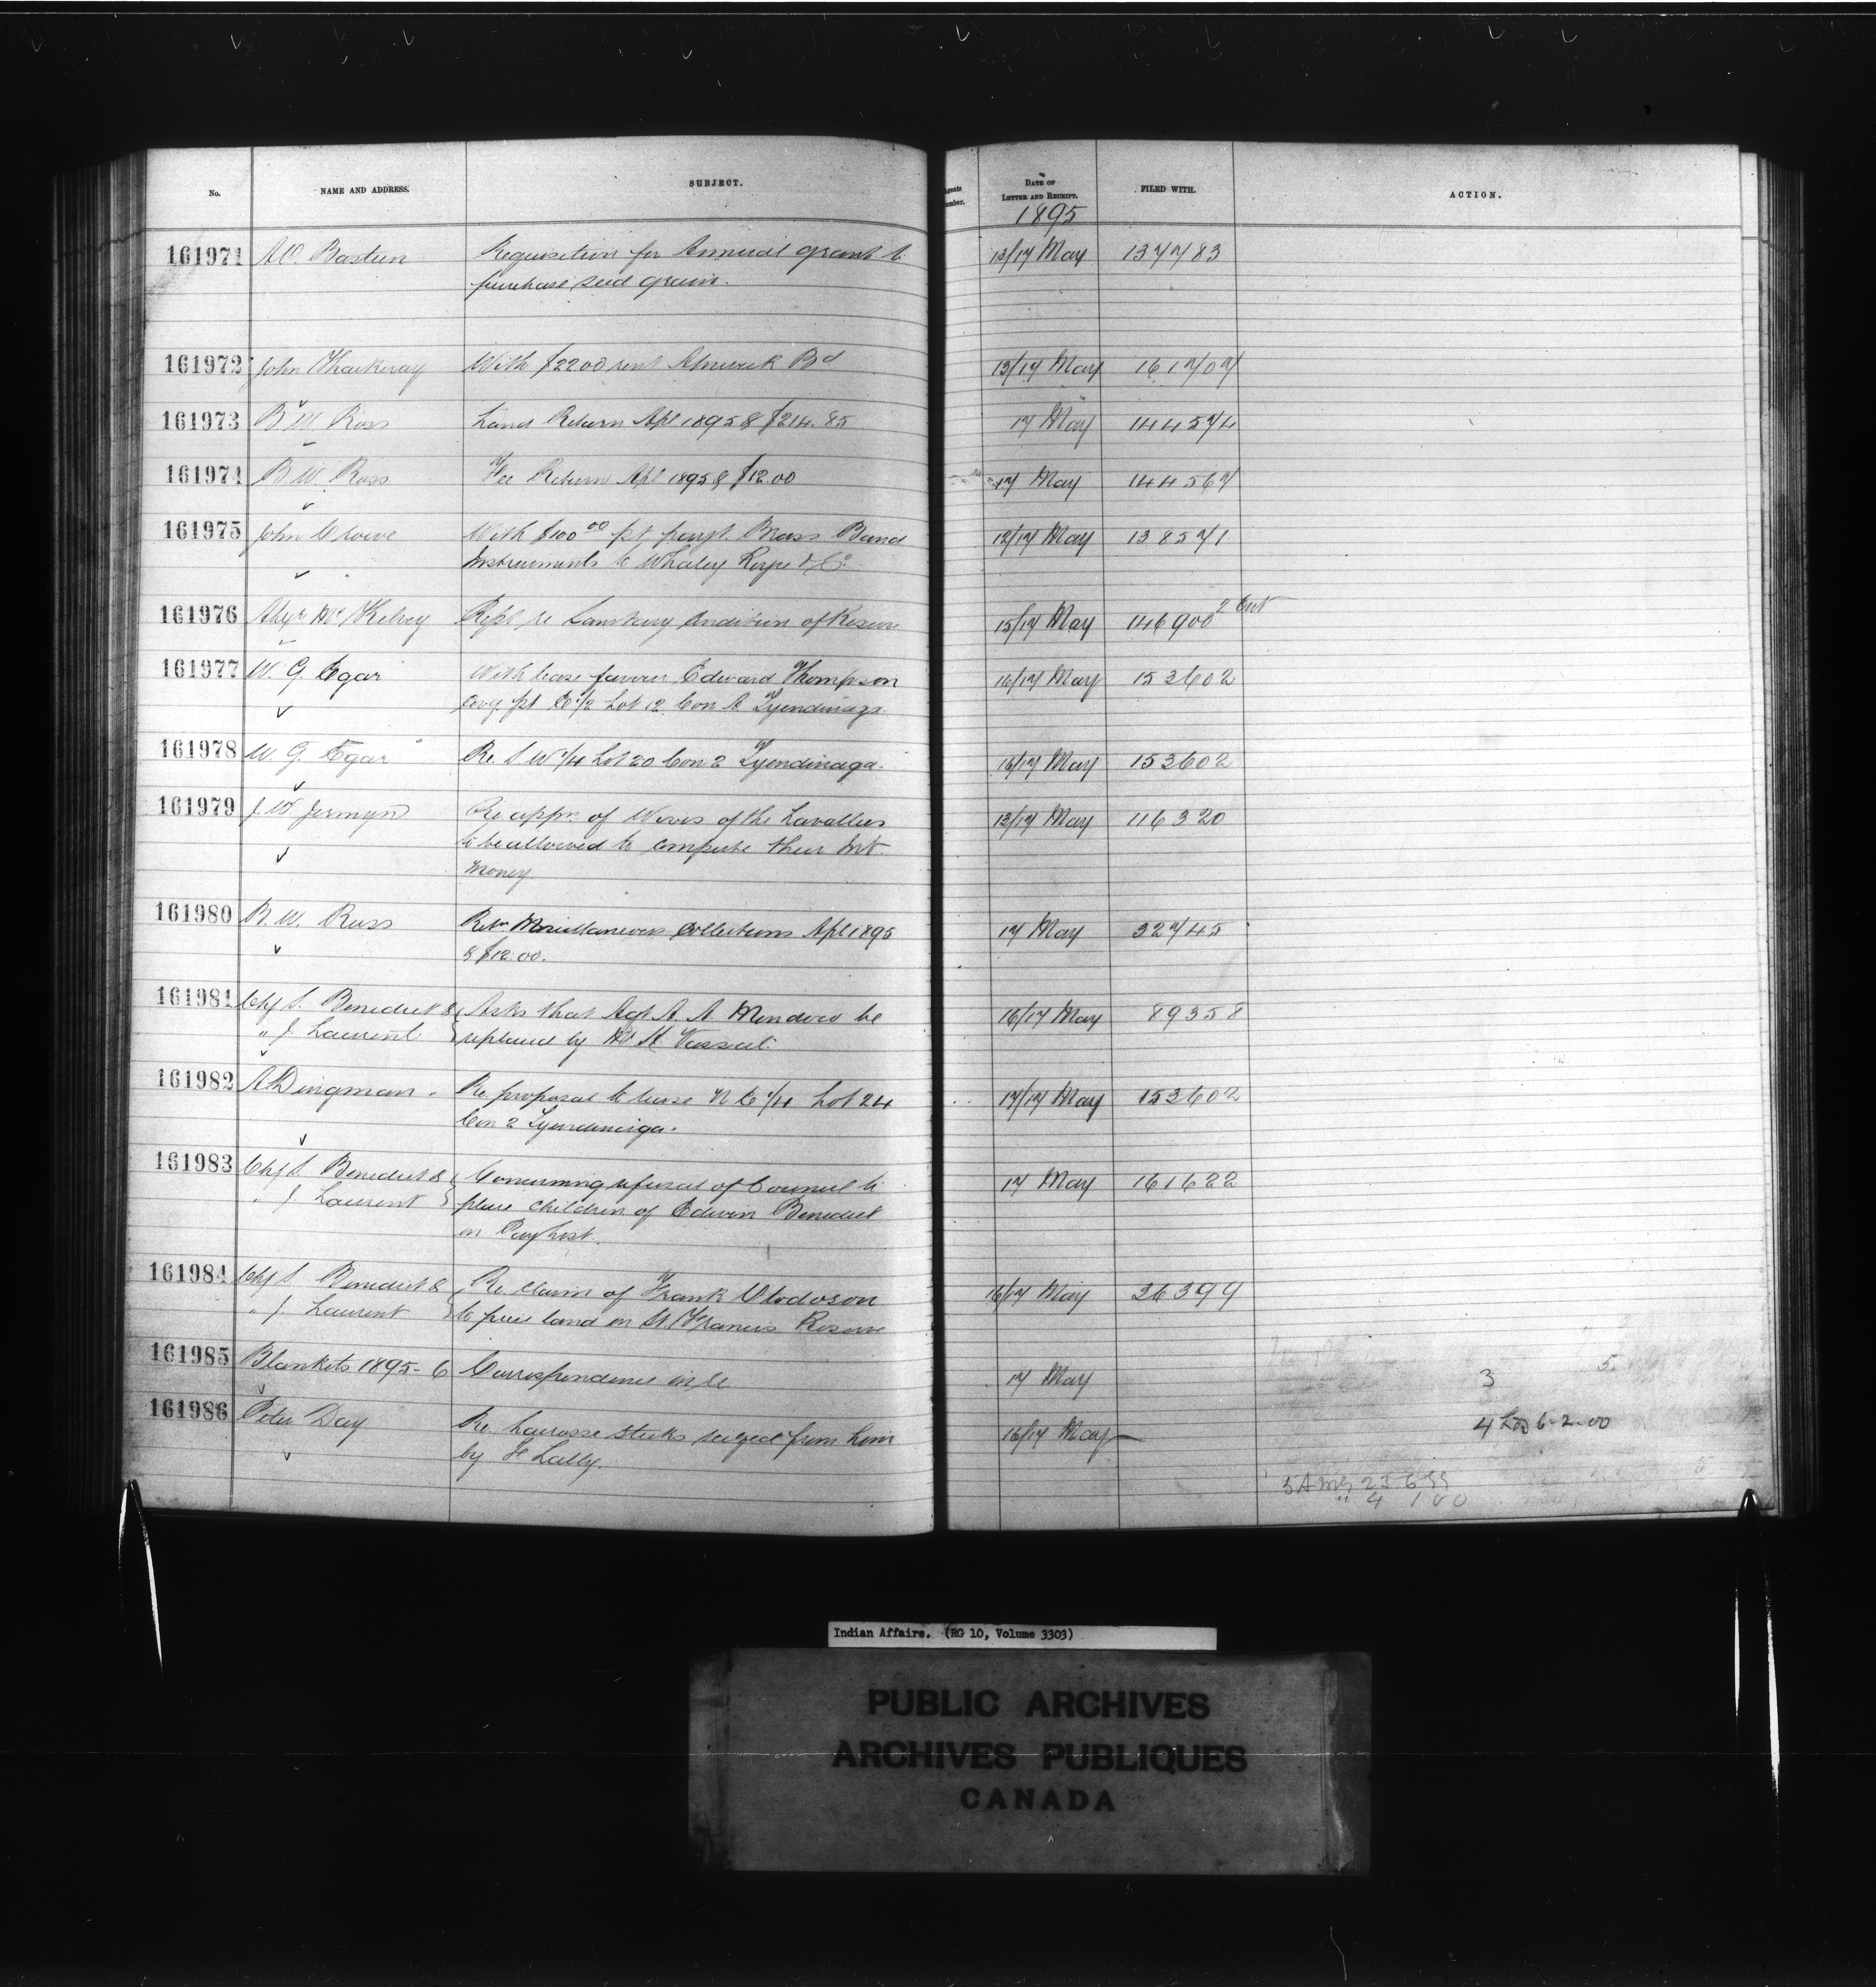 No. NAME AND ADDRESS. SUBJECT. Agents Number. DATE OF LETTER AND RECEIPT. FILED WITH. ACTION.
1895
161971 A.O. Bastien Requisition for Annual grant to 13/17 May 137783
purchase seed grain.
161972 John Thackeray With $22.00 rent Alnwick Bd 13/17 May 161707
161973 B W Ross Land Return Apl 1895 & $214.85 17 May 144574
161974 B W. Ross Fee Return Apl 1895 & $12.00 17 May 144567
161975 John Crowe With $100 00 pt payt. Brass Band 12/17 May 138571
Instruments to Whaley Royce & Co.
161976 Alexr Mc Kelvey Rept re Sanitary Condition of Reserve 15/17 May 146900 2 Cut
161977 W. G. Egar With lease favour Edward Thompson 16/17 May 153602
Covg. pt E 1/2 Lot 12 Con A Tyendinaga
161978 W. G. Egar Re. S W 1/4 Lot 20 Con 2 Tyendinaga. 16/17 May 153602
161979 J W Jermyn Re appn. of Wives of the Lavallees 13/17 May 116320
to be allowed to commute their Int.
money
161980 B. W. Ross Retn Miscellaneous Collections Apl 1895 17 May 32745
& $12.00.
161981 Chf S. Benedict & Asks that Agt A. A. Mondou be 16/17 May 89358
" J. Laurent replaced by H Vassal.
161982 A Dingman. Re proposal to lease N E 1/4 Lot 24 17/17 May 153602
Con 2 Tyendinaga.
161983 Chf S. Benedict & Concerning refusal of Council to 17 May 161622
" J. Laurent place children of Edwin Benedict
on Pay List.
161984 Chf S Benedict & Re. Claim of Frank Obodoson 16/17 May 36399
" J. Laurent to piece land on St. Francis Reserve
161985 Blankets 1895-6 Correspondence in re 17 May 3 5
161986 Peter Day Re. Lacrosse sticks seized from him 16/17 May 4 6-2-00
by F Lally.
" 4 100
Indian Affairs. (RG 10, Volume 3303)
PUBLIC ARCHIVES
ARCHIVES PUBLIQUES
CANADA